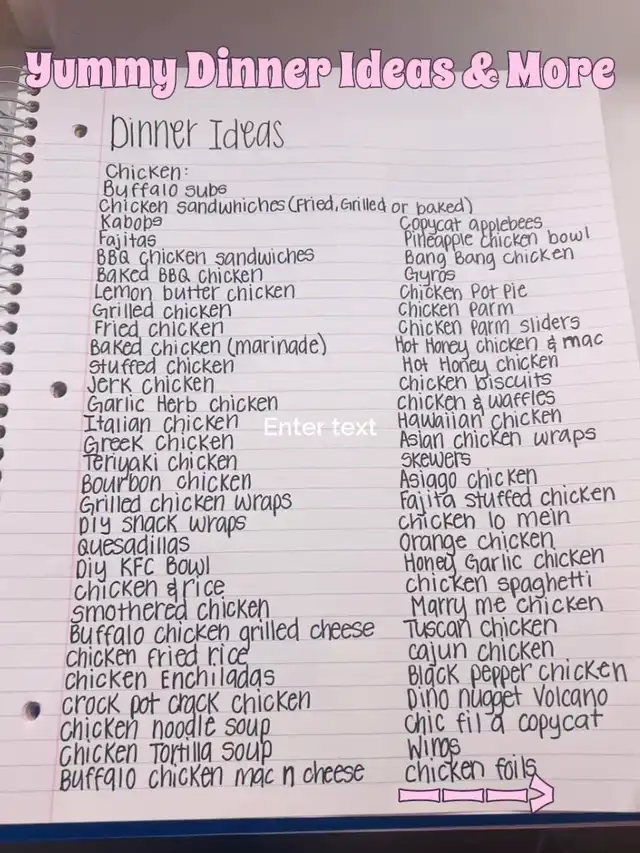 Yummy Dinner Ideas & More
Dinner Ideas
Chicken:
Buffalo subs
Chicken sandwhiches (Fried, Grilled or baked)
Kabobs
Fajitas
BBQ chicken sandwiches
Baked BBQ chicken
Lemon butter chicken
Grilled chicken
Fried chicken
Baked chicken (marinade)
Stuffed chicken
Jerk chicken
Garlic Herb chicken
Italian chicken
Greek chicken
Teriyaki chicken
Bourbon chicken
Grilled chicken wraps
DIY snack wraps
Quesadillas
Diy KFC Bowl
chicken & rice
smothered chicken
Buffalo chicken grilled cheese
chicken fried rice
chicken Enchiladas
crock pot crack chicken
chicken noodle soup
chicken Tortilla soup
Buffalo chicken mac n cheese
Copycat applebees
Pineapple chicken bowl
Bang Bang chicken
Gyros
Chicken Pot Pie
Chicken Parm
Chicken Parm sliders
Hot Honey chicken & mac
Hot Honey chicken
chicken biscuits
chicken & waffles
Hawaiian chicken
Asian chicken wraps
skewers
Asiago chicken
Fajita stuffed chicken
chicken lo mein
Orange chicken
Honey Garlic chicken
chicken spaghetti
Marry me chicken
Tuscan chicken
cajun chicken
Black pepper chicken
Dino nugget Volcano
Chic fil a copycat
Wings
chicken foils
Enter text